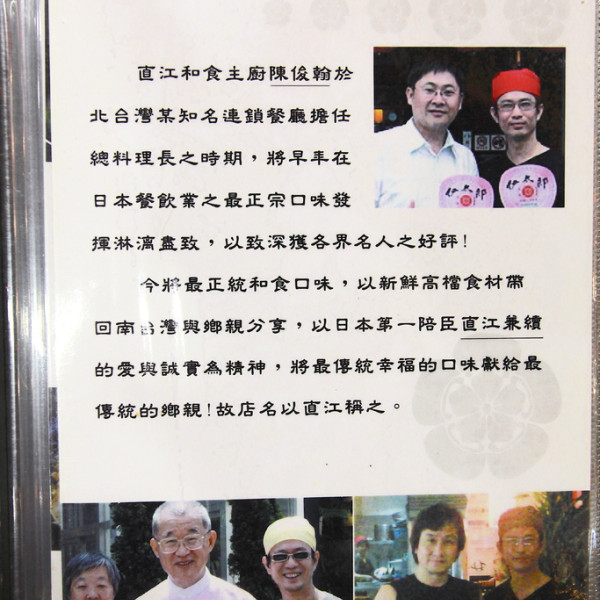 直江和食主廚陳俊翰於
北台灣某知名連鎖餐廳擔任
總料理長之時期，將早年在
日本餐飲業之最正宗口味發
揮淋漓盡致，以致深獲各界名人之好評！
今將最正統和食口味，以新鮮高檔食材帶
回南台灣與鄉親分享，以日本第一陪臣直江兼續
的愛與誠實為精神，將最傳統幸福的口味獻給最
傳統的鄉親！故店名以直江稱之。
伊太郎
伊太郎